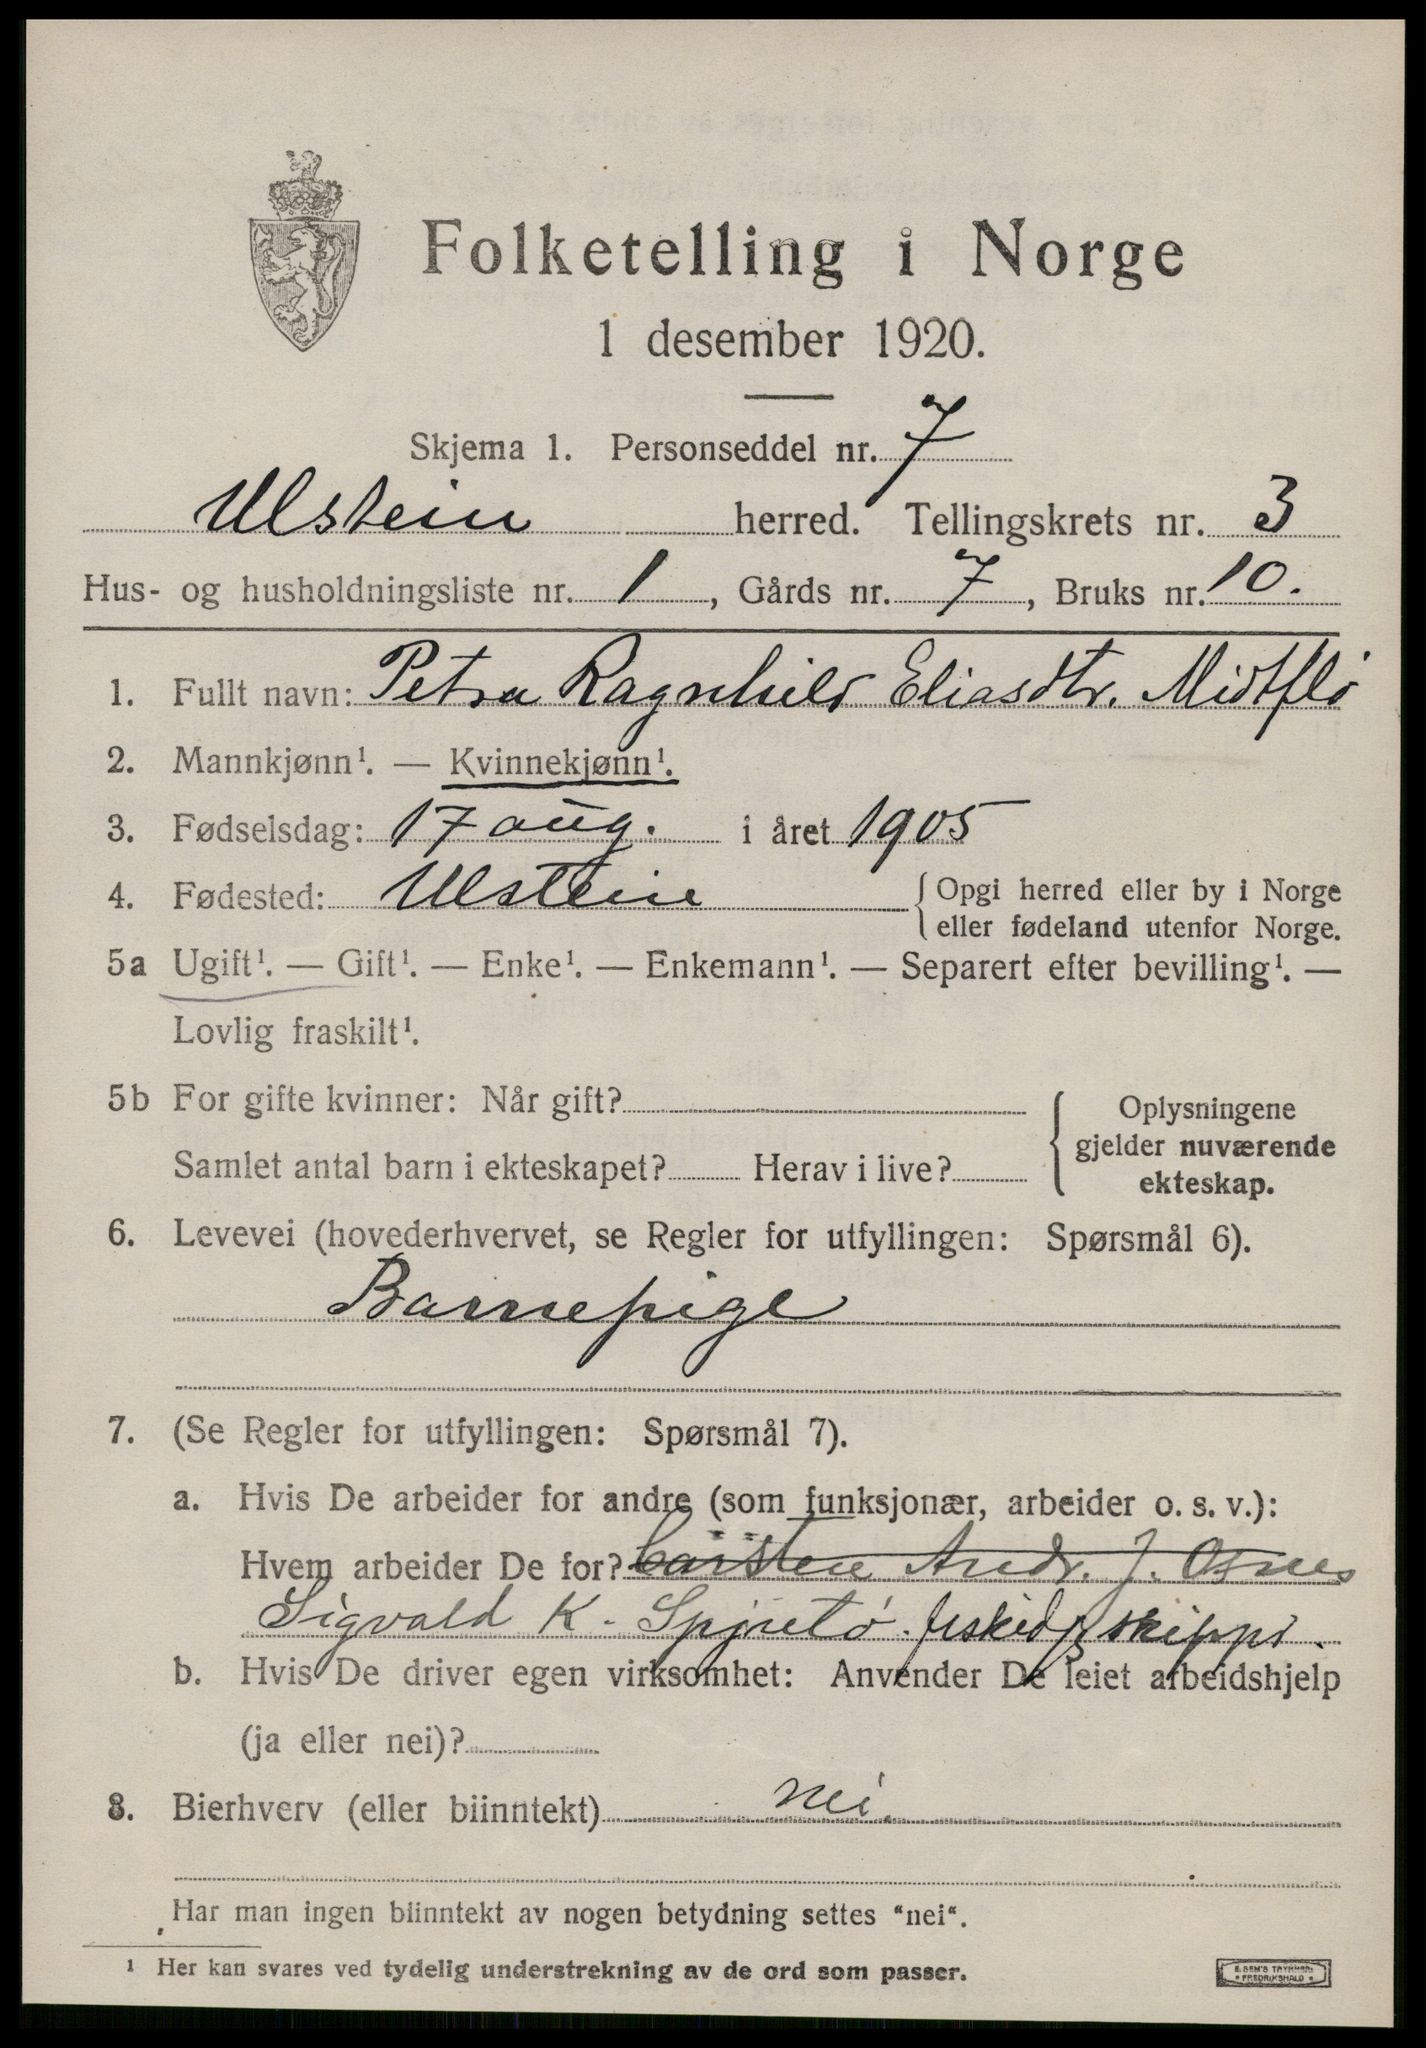 Folketelling i Norge
1 desember 1920.
Skjema 1. Personseddel nr. 7
Ulstein herred. Tellingskrets nr. 3
Hus- og husholdningsliste nr. 1, Gårds nr. 7, Bruks nr. 10.
1. Fullt navn: Petra Ragnhild Eliasdtr. Midtflø
2. Mannkjønn¹. — Kvinnekjønn¹.
3. Fødselsdag: 17 aug. i året 1905
4. Fødested: Ulstein { Opgi herred eller by i Norge
eller fødeland utenfor Norge.
5a Ugift¹. — Gift¹. — Enke¹. — Enkemann¹. — Separert efter bevilling¹. —
Lovlig fraskilt¹.
5b For gifte kvinner: Når gift?
Samlet antal barn i ekteskapet? Herav i live?
Oplysningene
gjelder nuværende
ekteskap.
6. Levevei (hovederhvervet, se Regler for utfyllingen: Spørsmål 6).
Barnepige
7. (Se Regler for utfyllingen: Spørsmål 7).
a. Hvis De arbeider for andre (som funksjonær, arbeider o. s. v.):
Hvem arbeider De for? Carsten Andr. J. Osnes
Sigvald K. fisked
b. Hvis De driver egen virksomhet: Anvender De leiet arbeidshjelp
(ja eller nei)?
8. Bierhverv (eller biinntekt) nei.
Har man ingen biinntekt av nogen betydning settes "nei".
¹ Her kan svares ved tydelig understrekning av de ord som passer.
E. SEM'S TRYKKERI
• FREDRIKSHALD •